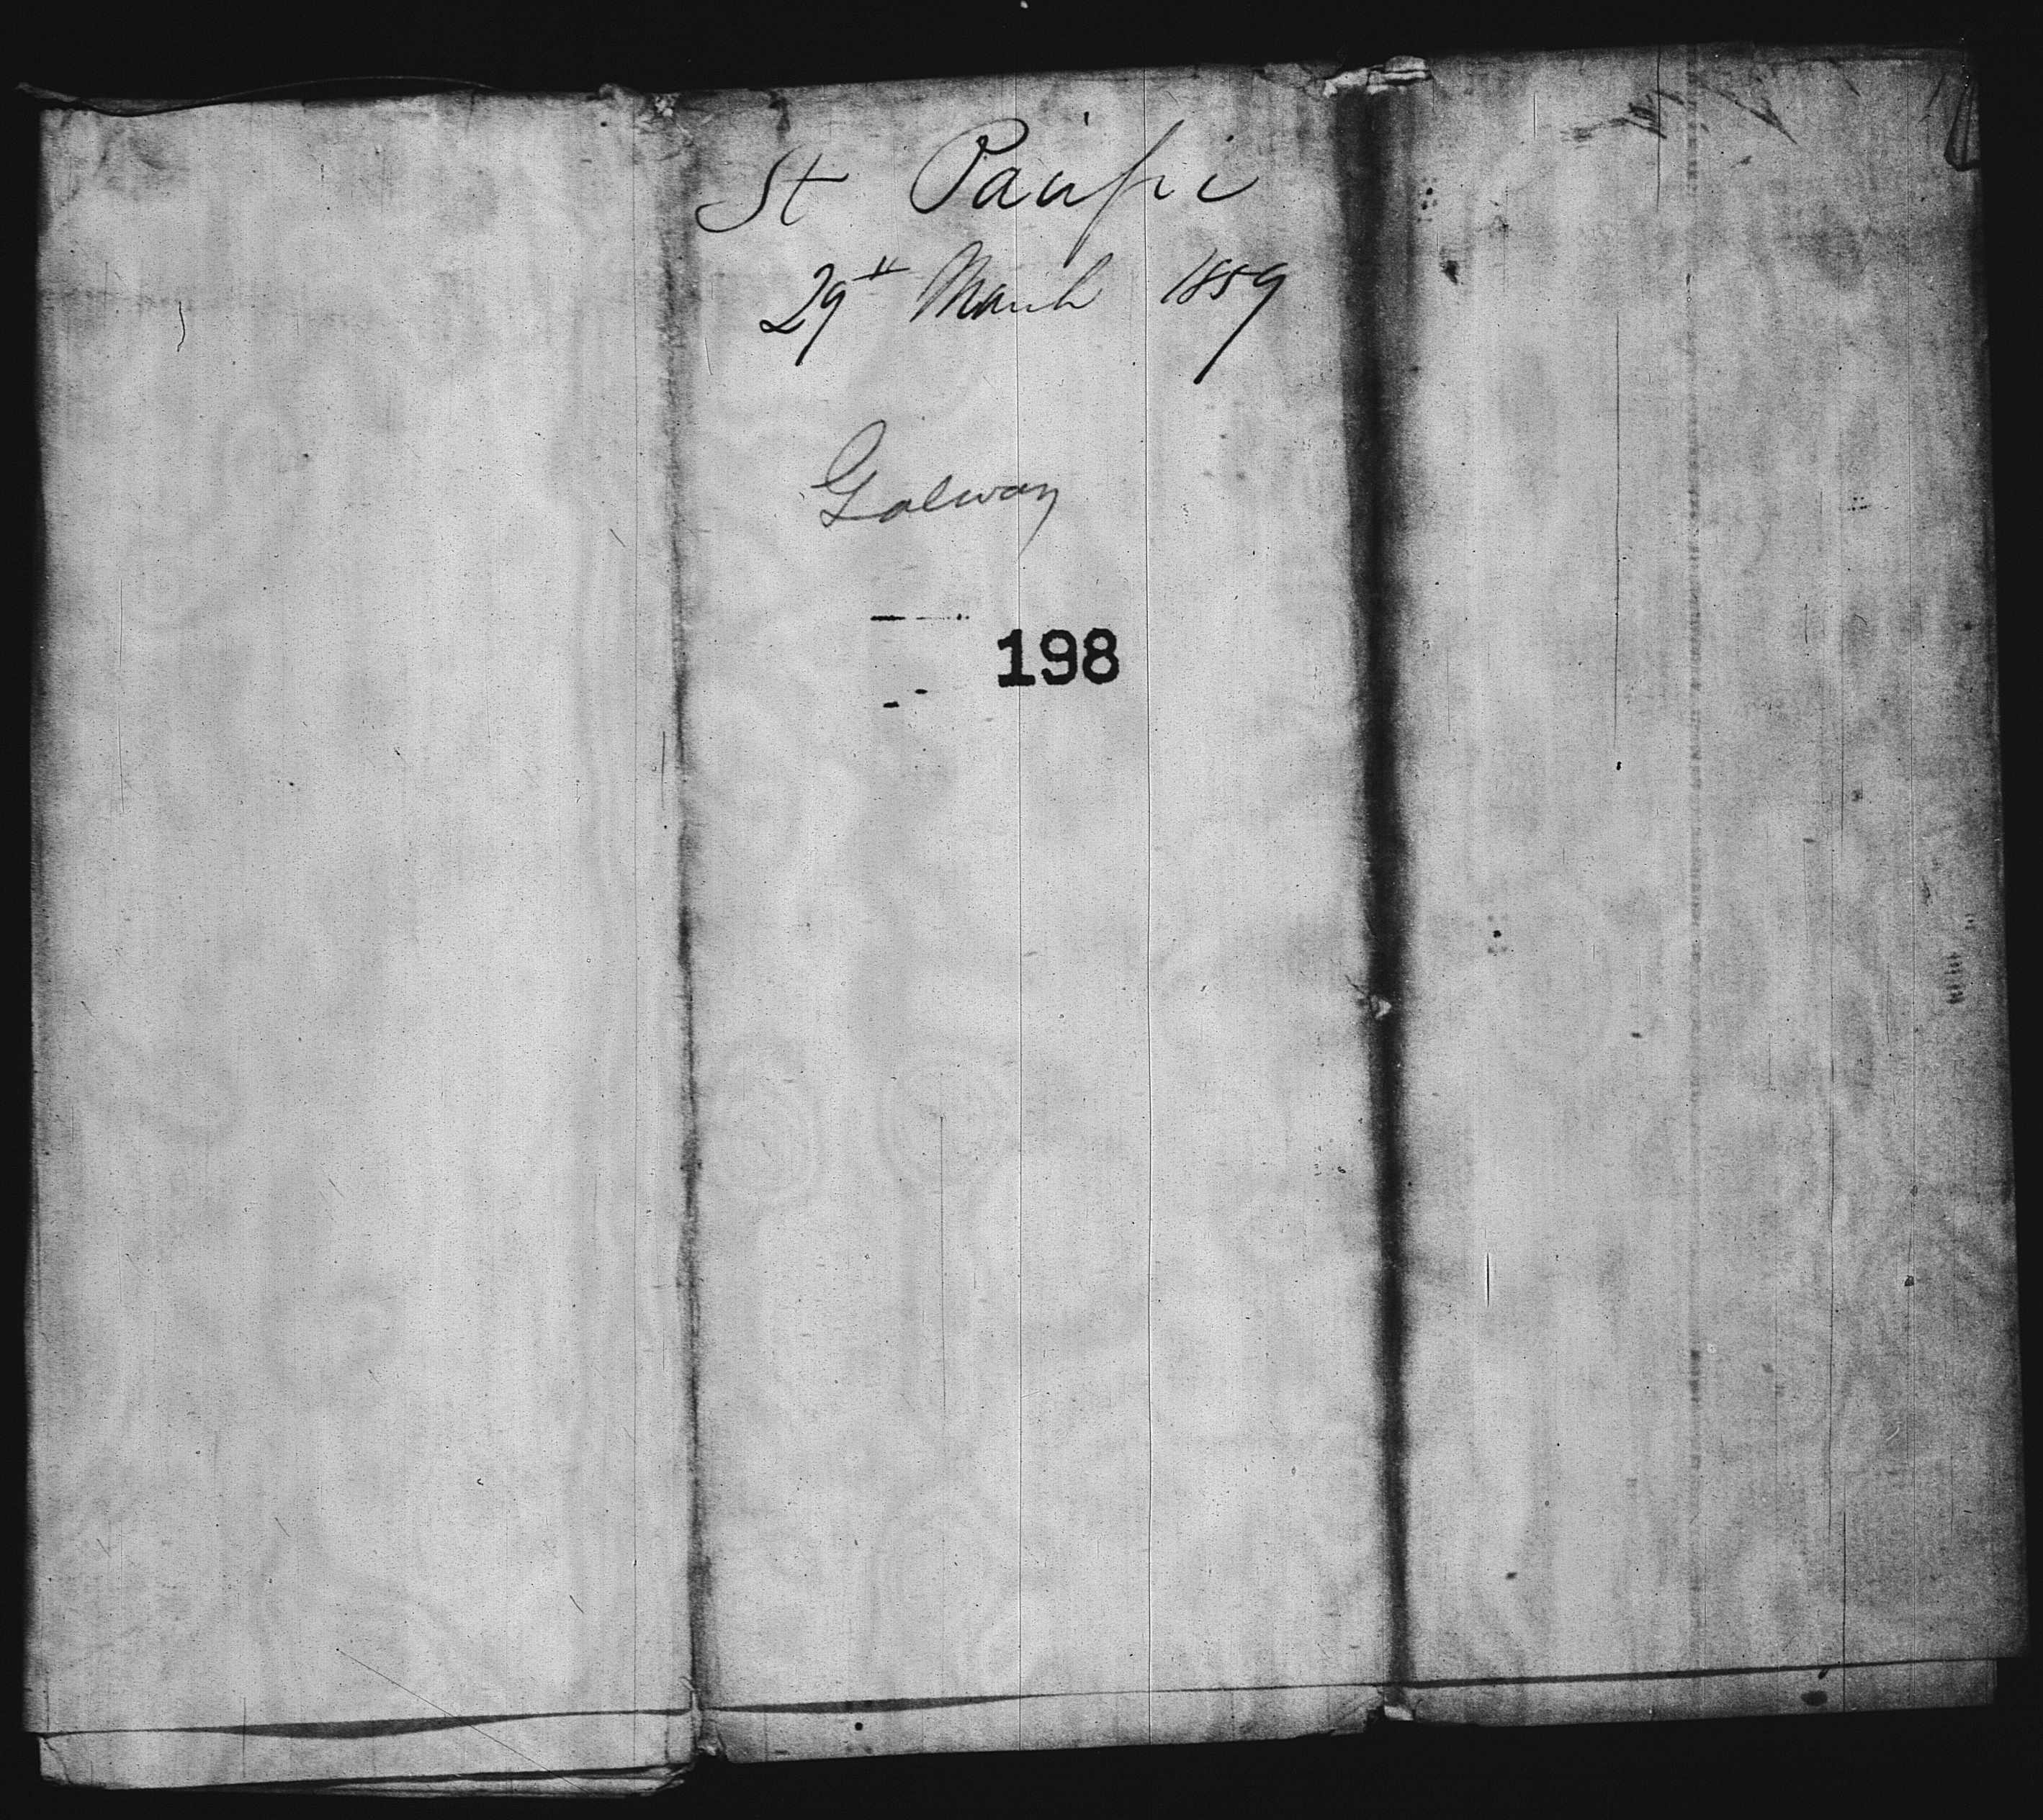 St Pacific
29th March 1859
Galway
198